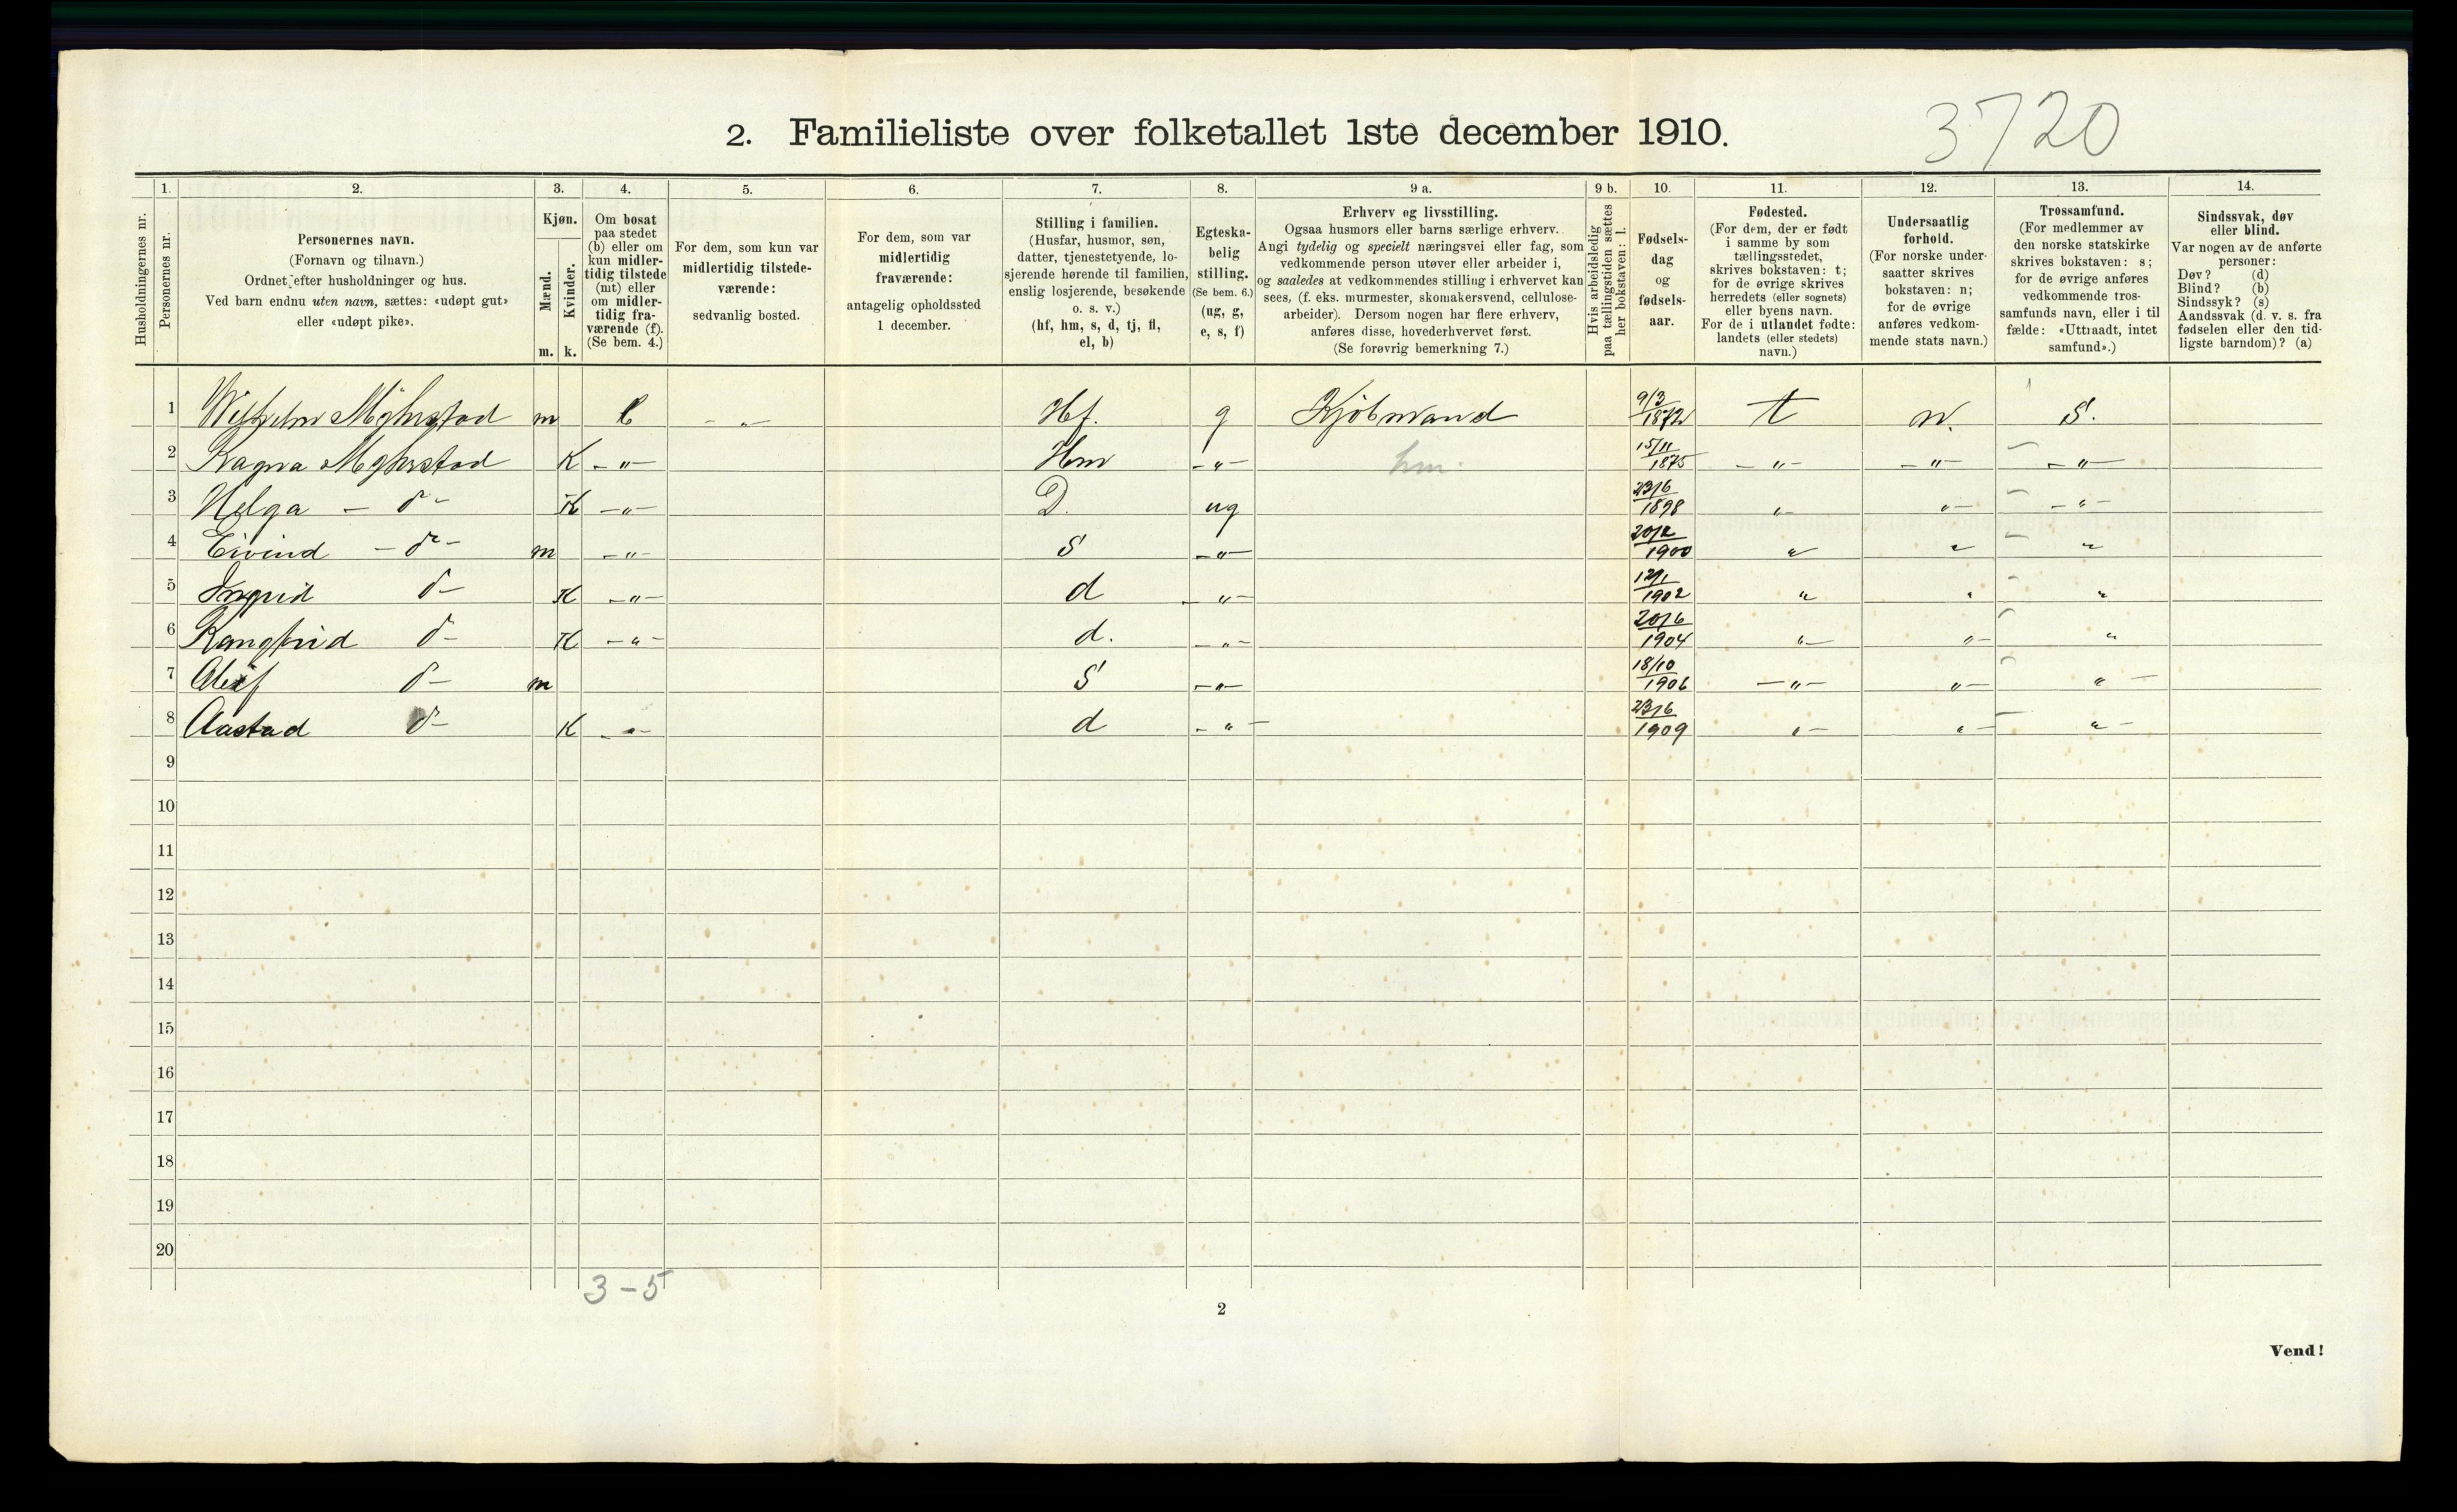 3720
2. Familieliste over folketallet 1ste december 1910.
1. 2. 3. 4. 5. 6. 7. 8. 9 a. 9 b. 10. 11. 12. 13. 14.
Husholdningernes nr.
Personernes nr.
Personernes navn.
(Fornavn og tilnavn.)
Ordnet efter husholdninger og hus.
Ved barn endnu uten navn, sættes: «udøpt gut»
eller «udøpt pike».
Kjøn.
Mænd.
m.
Kvinder.
k.
Om bosat
paa stedet
(b) eller om
kun midler-
tidig tilstede
(mt) eller
om midler-
tidig fra-
værende (f).
(Se bem. 4.)
For dem, som kun var
midlertidig tilstede-
værende:
sedvanlig bosted.
For dem, som var
midlertidig
fraværende:
antagelig opholdssted
1 december.
Stilling i familien.
(Husfar, husmor, søn,
datter, tjenestetyende, lo-
sjerende hørende til familien,
enslig losjerende, besøkende
o. s. v.)
(hf, hm, s, d, tj, fl,
el, b)
Egteska-
belig
stilling.
(Se bem. 6.)
(ug, g,
e, s, f)
Erhverv og livsstilling.
Ogsaa husmors eller barns særlige erhverv.
Angi tydelig og specielt næringsvei eller fag, som
vedkommende person utøver eller arbeider i,
og saaledes at vedkommendes stilling i erhvervet kan
sees, (f. eks. murmester, skomakersvend, cellulose-
arbeider). Dersom nogen har flere erhverv,
anføres disse, hovederhvervet først.
(Se forøvrig bemerkning 7.)
Hvis arbeidsledig
paa tællingstiden sættes
her bokstaven: l.
Fødsels-
dag
og
fødsels-
aar.
Fødested.
(For dem, der er født
i samme by som
tællingsstedet,
skrives bokstaven: t;
for de øvrige skrives
herredets (eller sognets)
eller byens navn.
For de i utlandet fødte:
landets (eller stedets)
navn.)
Undersaatlig
forhold.
(For norske under-
saatter skrives
bokstaven: n;
for de øvrige
anføres vedkom-
mende stats navn.)
Trossamfund.
(For medlemmer av
den norske statskirke
skrives bokstaven: s;
for de øvrige anføres
vedkommende tros-
samfunds navn, eller i til
fælde: «Uttraadt, intet
samfund».)
Sindssvak, døv
eller blind.
Var nogen av de anførte
personer:
Døv? (d)
Blind? (b)
Sindssyk? (s)
Aandssvak (d. v. s. fra
fødselen eller den tid-
ligste barndom)? (a)
1 m b - " - Hf. g Kjøbmand 9/3 1872 t n. S.
2 Ragna K - " - Hm - " - hm. 15/11 1875 - " - - " - - " -
3 Helga - d - K - " - D. ug 23/6 1898 " - " - - " -
4 Eivind - d - m - " - S - " - 20/2 1900 " " "
5 Ingrid d - K - " - d - " - 12/1 1902 " " "
6 d - K - " - d. - " - 20/6 1904 " - " - "
7 d - m S - " - 18/10 1906 - " - " - " -
8 Aastad d - K - " - d - " - 23/6 1909 " - " - " -
9
10
11
12
13
14
15
16
17
18
19
20
3 - 5
2
Vend!